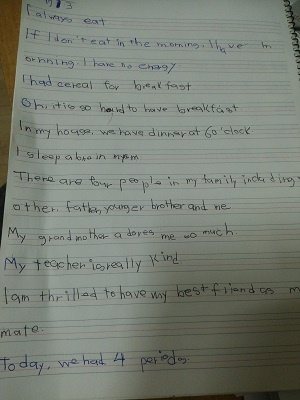 I always eat
If I don't eat in the morning, I have
orning. I have no energy
I had cereal for breakfast
Oh, it is so hard to have breakfast.
In my house, we have dinner at 6 o'clock
I sleep in
There are four people in my family including
other. father, younger brother and me
My grandmother adores me so much.
My teacher is really kind
I am thrilled to have my best friend as m
mate.
Today, we had 4 periods.